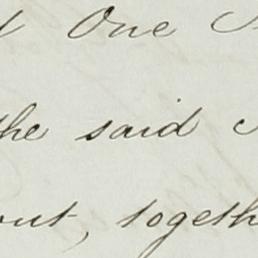 One
the said
out, togeth